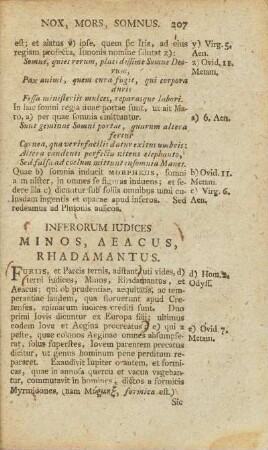 NOX, MORS, SOMNUS. 207
est; et alatus y) ipse, quem sic Iris, ad eius
regiam profecta, Iunonis nomine salutat z):
Somne, quies rerum, placidissime Somne Deo-
rum,
Pax animi, quem cura fugit, qui corpora
duris
Fessa ministeriis mulces, reparasque labori.
In hac somni regia duae portae sunt, ut ait
Maro, a) per quas somnia emittuntur.
Sunt geminae Somni portae, quarum altera
fertur
Cornea, qua veris facilis datur exitus umbris:
Altera candenti perfecta nitens elephanto,
Sed falsa ad coelum mittunt insomnia Manes.
Quae b) somnia inducit MORPHEUS, somni
minister, in omnes se figuras induens; et
sedere illa c) dicuntur sub foliis omnibus ulmi
ingentis et opacae apud inferos. Sed
redeamus ad Plutonis aulicos.
y) Virg. 5.
Aen.
z) Ovid. 11.
Metam.
a) 6. Aen.
b) Ovid. 11.
Metam.
c) Virg. 6.
Aen.
INFERORUM IUDICES
MINOS, AEACUS,
RHADAMANTUS.
FURIIS, et Parcis ternis, adstant, uti vides, d)
terni iudices, Minos, Rhadamantus, et
Aeacus; qui ob prudentiae, aequitatis, ac tem-
perantiae laudem, qua floruerunt apud Cre-
tenses, animarum iudices crediti sunt. Duo
primi Iovis dicuntur ex Europa filii; ultimus
eodem Iove et Aegina procreatus e) qui a
peste, quae colonos Aeginae omnes absumpse-
rat, solus superstes, Iovem parentem precatus
dicitur, ut gentem hominum pene perditam repa-
raret. Exaudivit Iupiter orantem, et formi-
cas, quae in annosa quercu et vacua vagaban-
tur, commutavit in homines, dictos a formicis
Myrmidones, (nam Μύρμηξ, formica est.)
d) Hom.
Odyss.
e) Ovid. 7.
Metam.
Sic